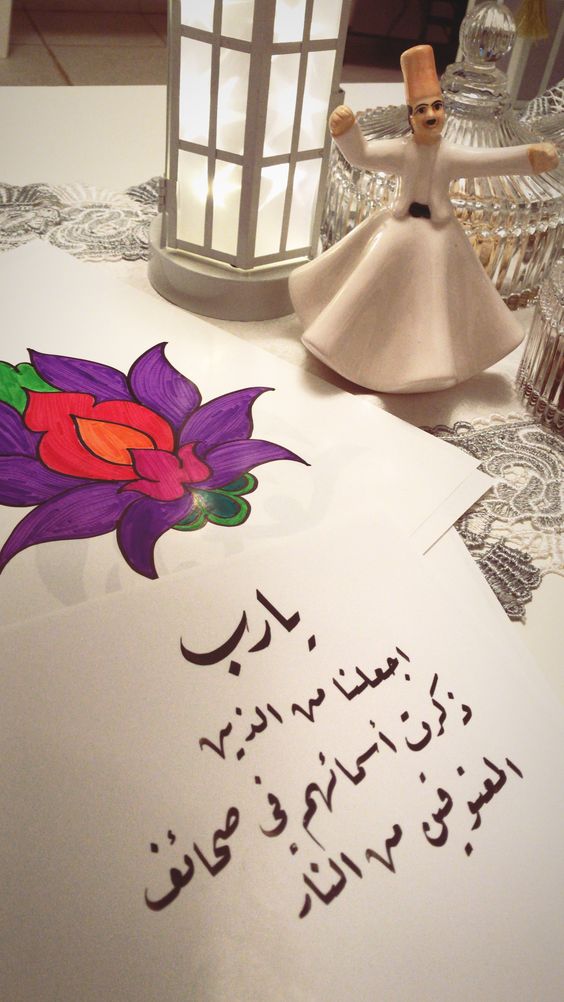 يارب
اجعلنا من الذين
ذكرت أسمائهم في صحائف
المعتوقين من النار